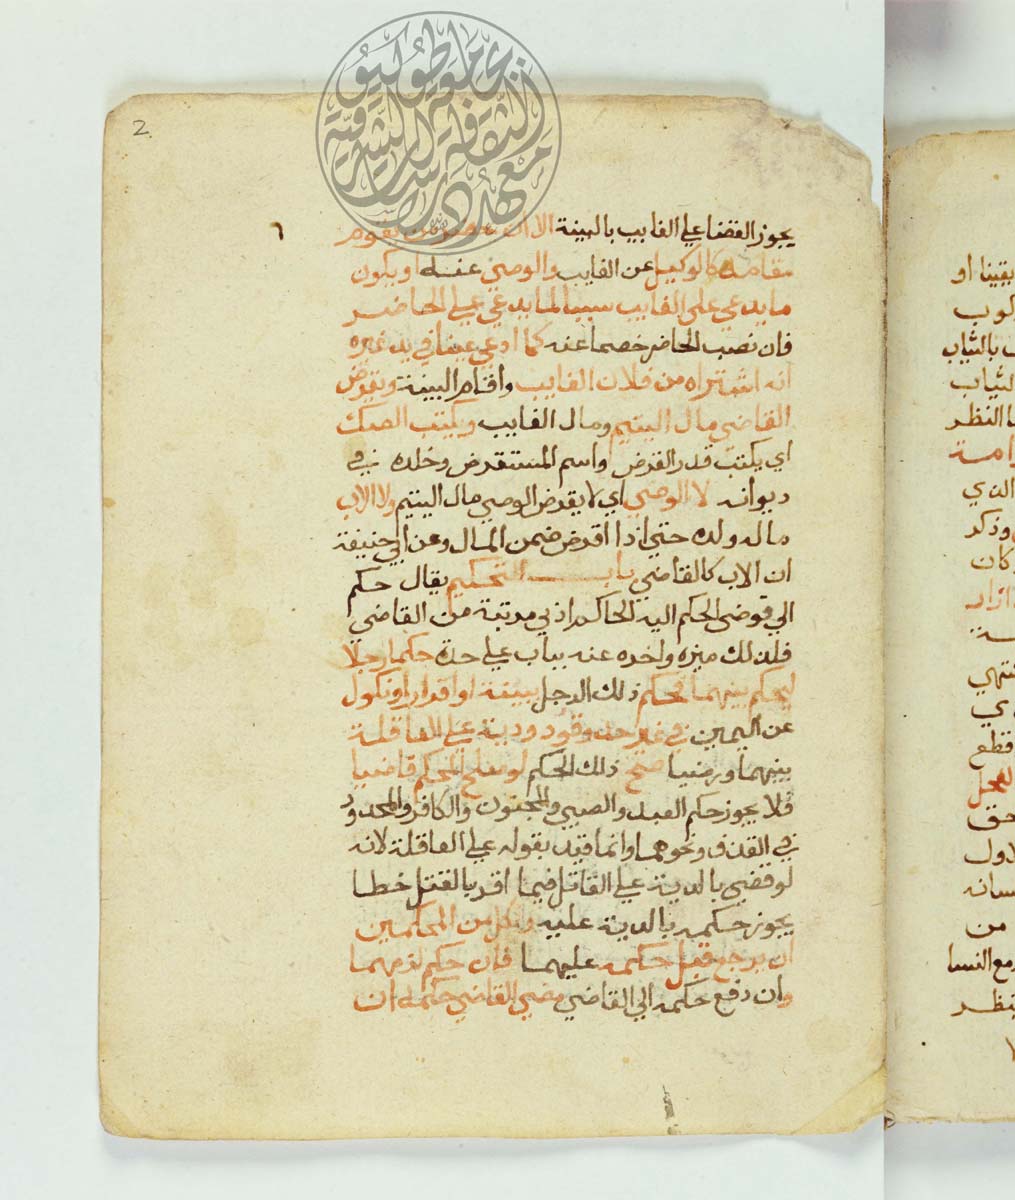 2
يجوز القضا علي الغايب بالبينة الا ان يحضر من يقوم
مقامه كالوكيل عن الغايب والوصي عنه او يكون
ما يدعي علي الغايب سببا لما يدعي علي الحاضر
فان نصب الحاضر خصما عنه كما ادعي عينا في يد غيره
انه اشتراه من فلان الغايب واقام البينة ويقرض
القاضي مال اليتيم ومال الغايب ويكتب الصك
اي يكتب قدر القرض واسم المستقرض وخلده في
ديوانه لا الوصي اي لا يقرض الوصي مال اليتيم ولا الاب
مال ولده حتي اذا اقرض ضمن المال وعن ابي حنيفة
ان الاب كالقاضي باب التحكيم يقال حكم
اي فوض الحكم اليه الحاكم ادني مرتبة من القاضي
فلذلك ميزه واخره عنه بباب علي حدة حكما رجلا
ليحكم بينهما فحكم ذلك الرجل ببينة او اقرار او نكول
عن اليمين في غير حد وقود ودية علي العاقلة
بينهما ورضيا صح ذلك الحكم لو صلح المحكم قاضيا
فلا يجوز حكم العبد والصبي والمجنون والكافر والمحدود
في القذف ونحوهما وانما قيد بقوله علي العاقلة لانه
لو قضي بالدية علي القاتل فيما اقر بالقتل خطا
يجوز حكمه بالدية عليه ولكل من المحكمين
ان يرجع قبل حكمه عليهما فان حكم لزمهما
وان دفع حكمه الي القاضي مضي القاضي حكمه ان
يقينا او
بالثياب
الثياب
النظر
الذي
وذكر
كان
قطع
حق
من
مع النسا